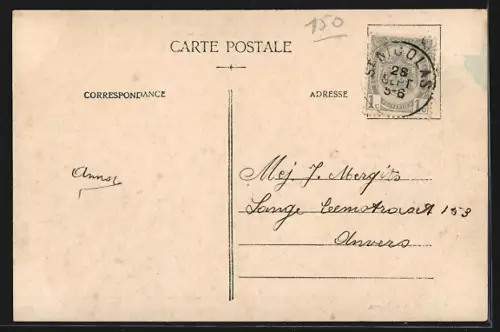 150
CARTE POSTALE
CORRESPONDANCE
ADRESSE
ST NICOLAS
28
SEPT
5-6
1 c 1
Anna
Mej. J. Mergits
Lange Leemstraat 153
Anvers